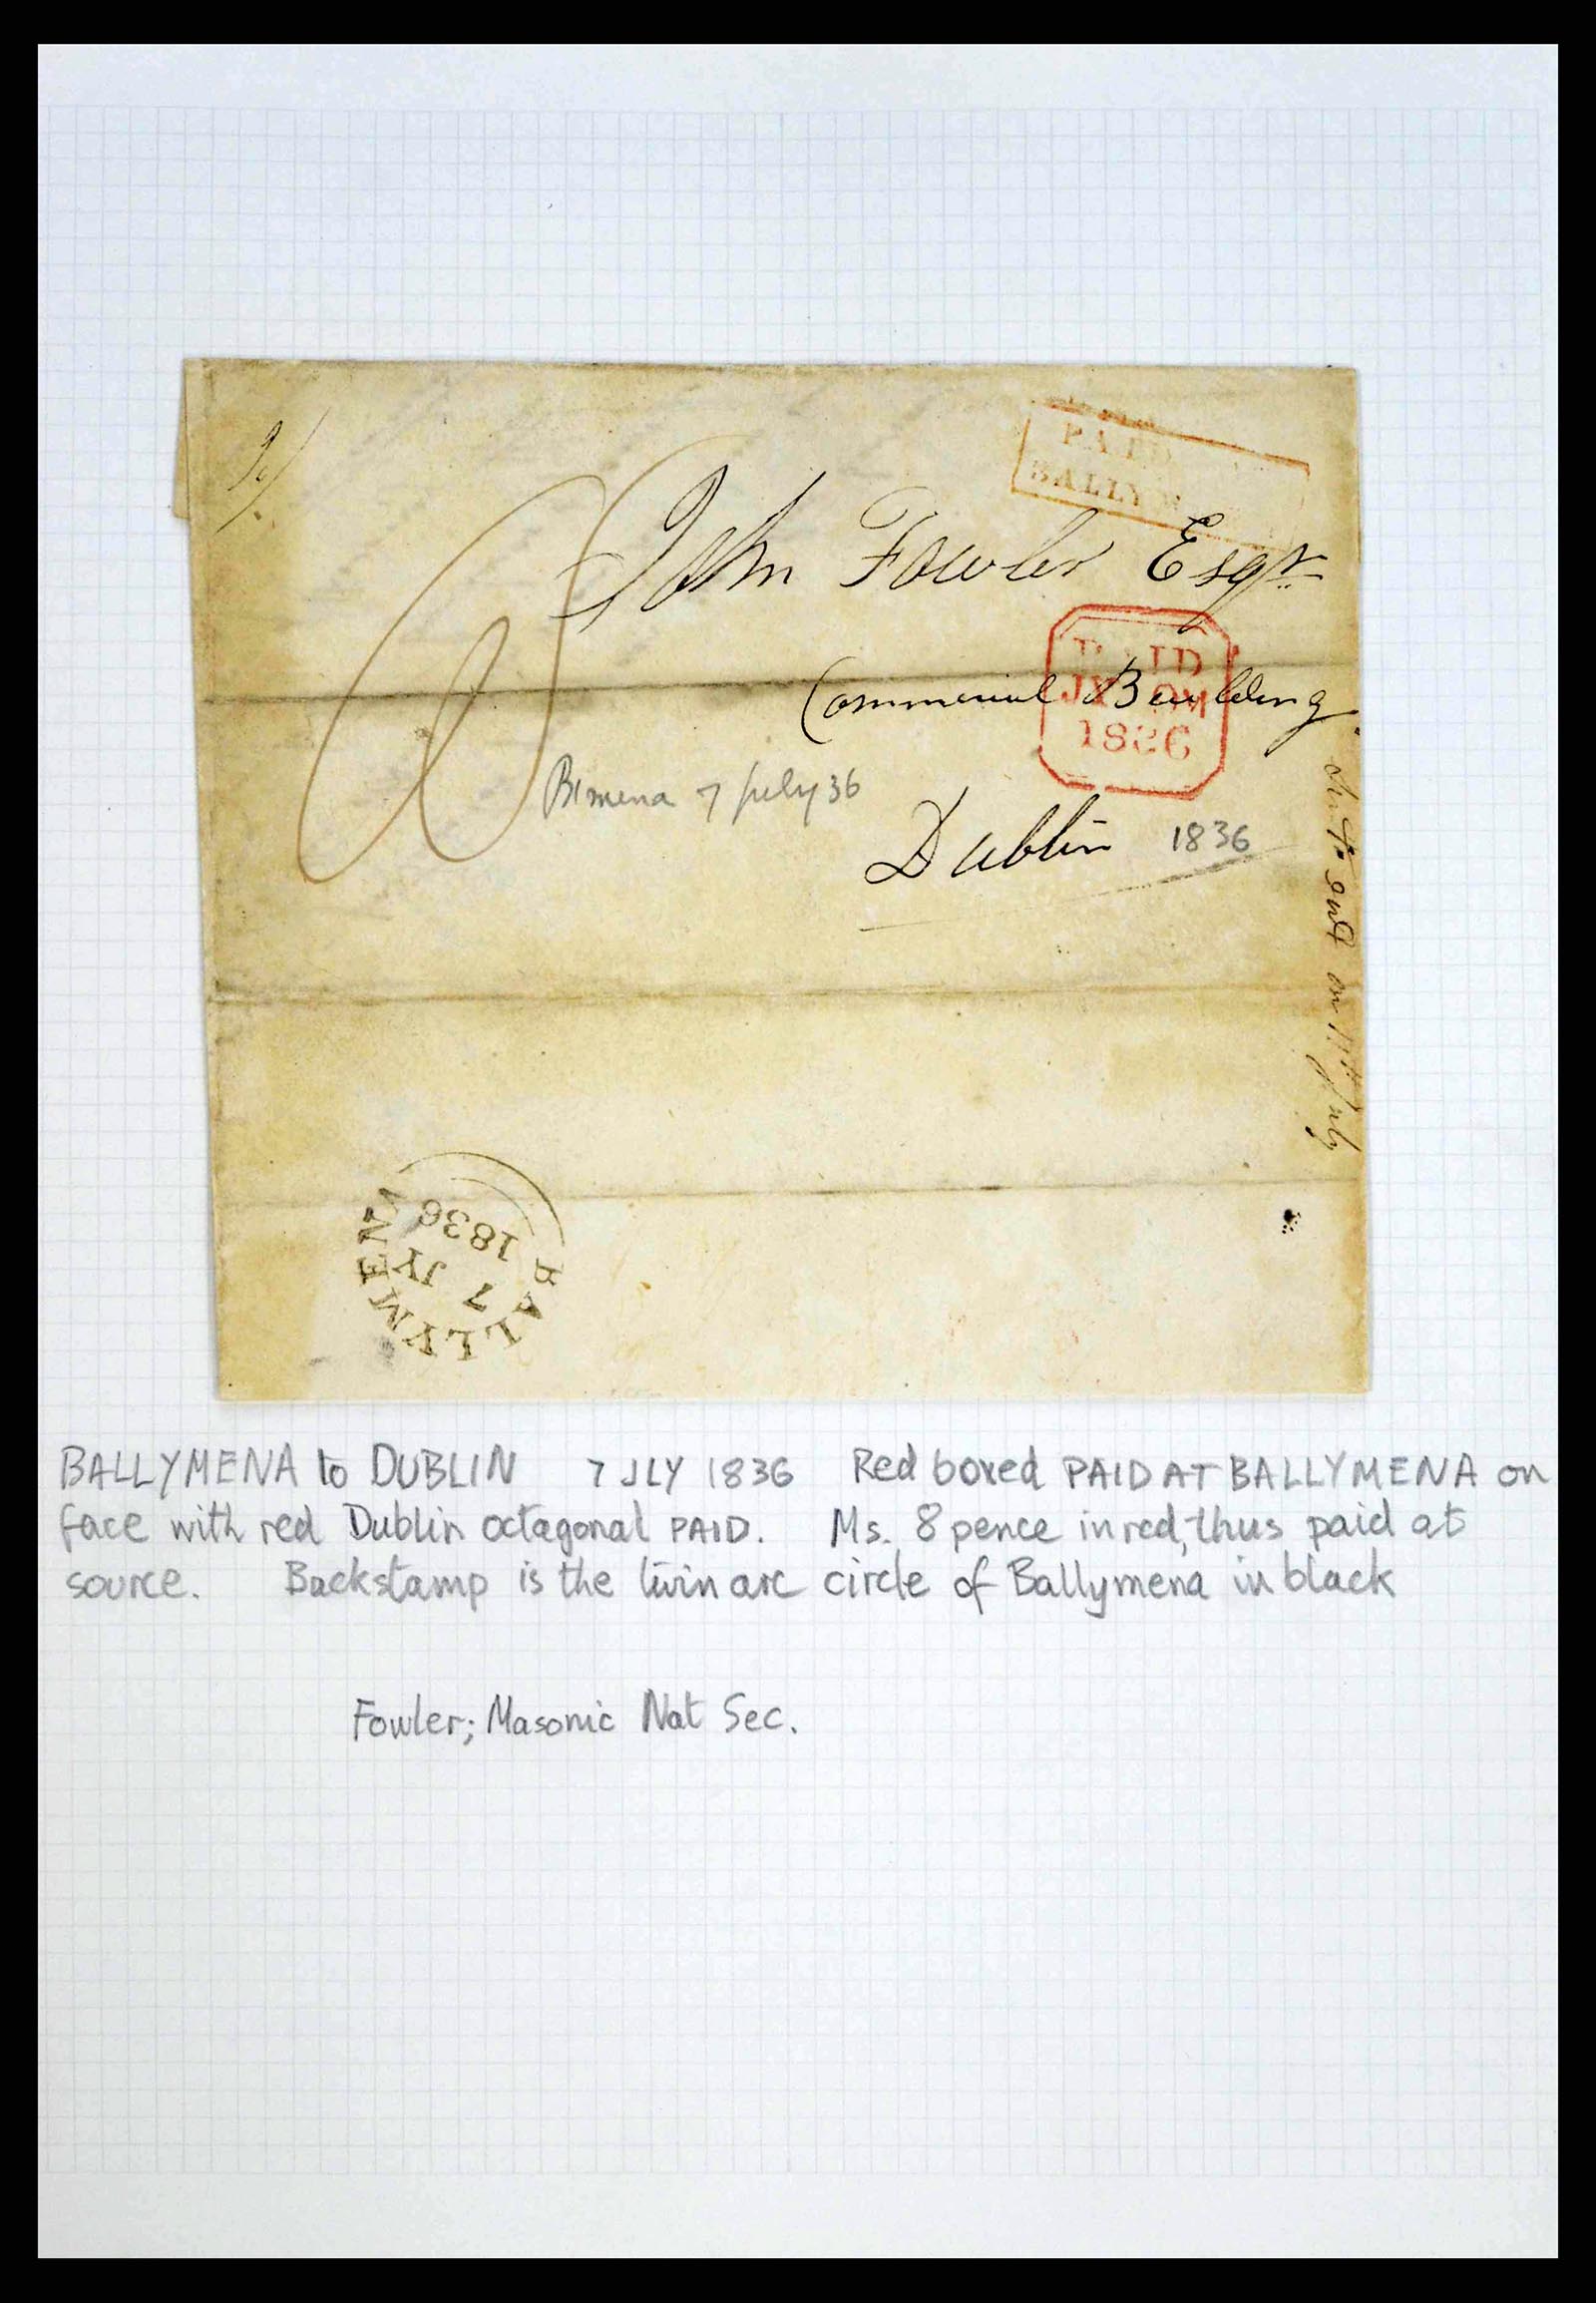 PAID
BALLYM
John Fowler Esqr
PAID
JY
1836
Commercial Building
B'mena 7 July 36
Dublin 1836
on July
BALLYMENA
7
JY
1836
BALLYMENA to DUBLIN 7 JLY 1836 Red boxed PAID AT BALLYMENA on
face with red Dublin octagonal PAID. Ms. 8 pence in red, thus paid at
source. Backstamp is the twin arc circle of Ballymena in black
Fowler; Masonic Nat Sec.